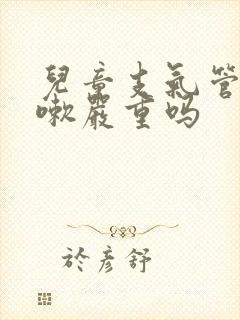 兒童支氣管
嗽嚴重吗
於彥舒